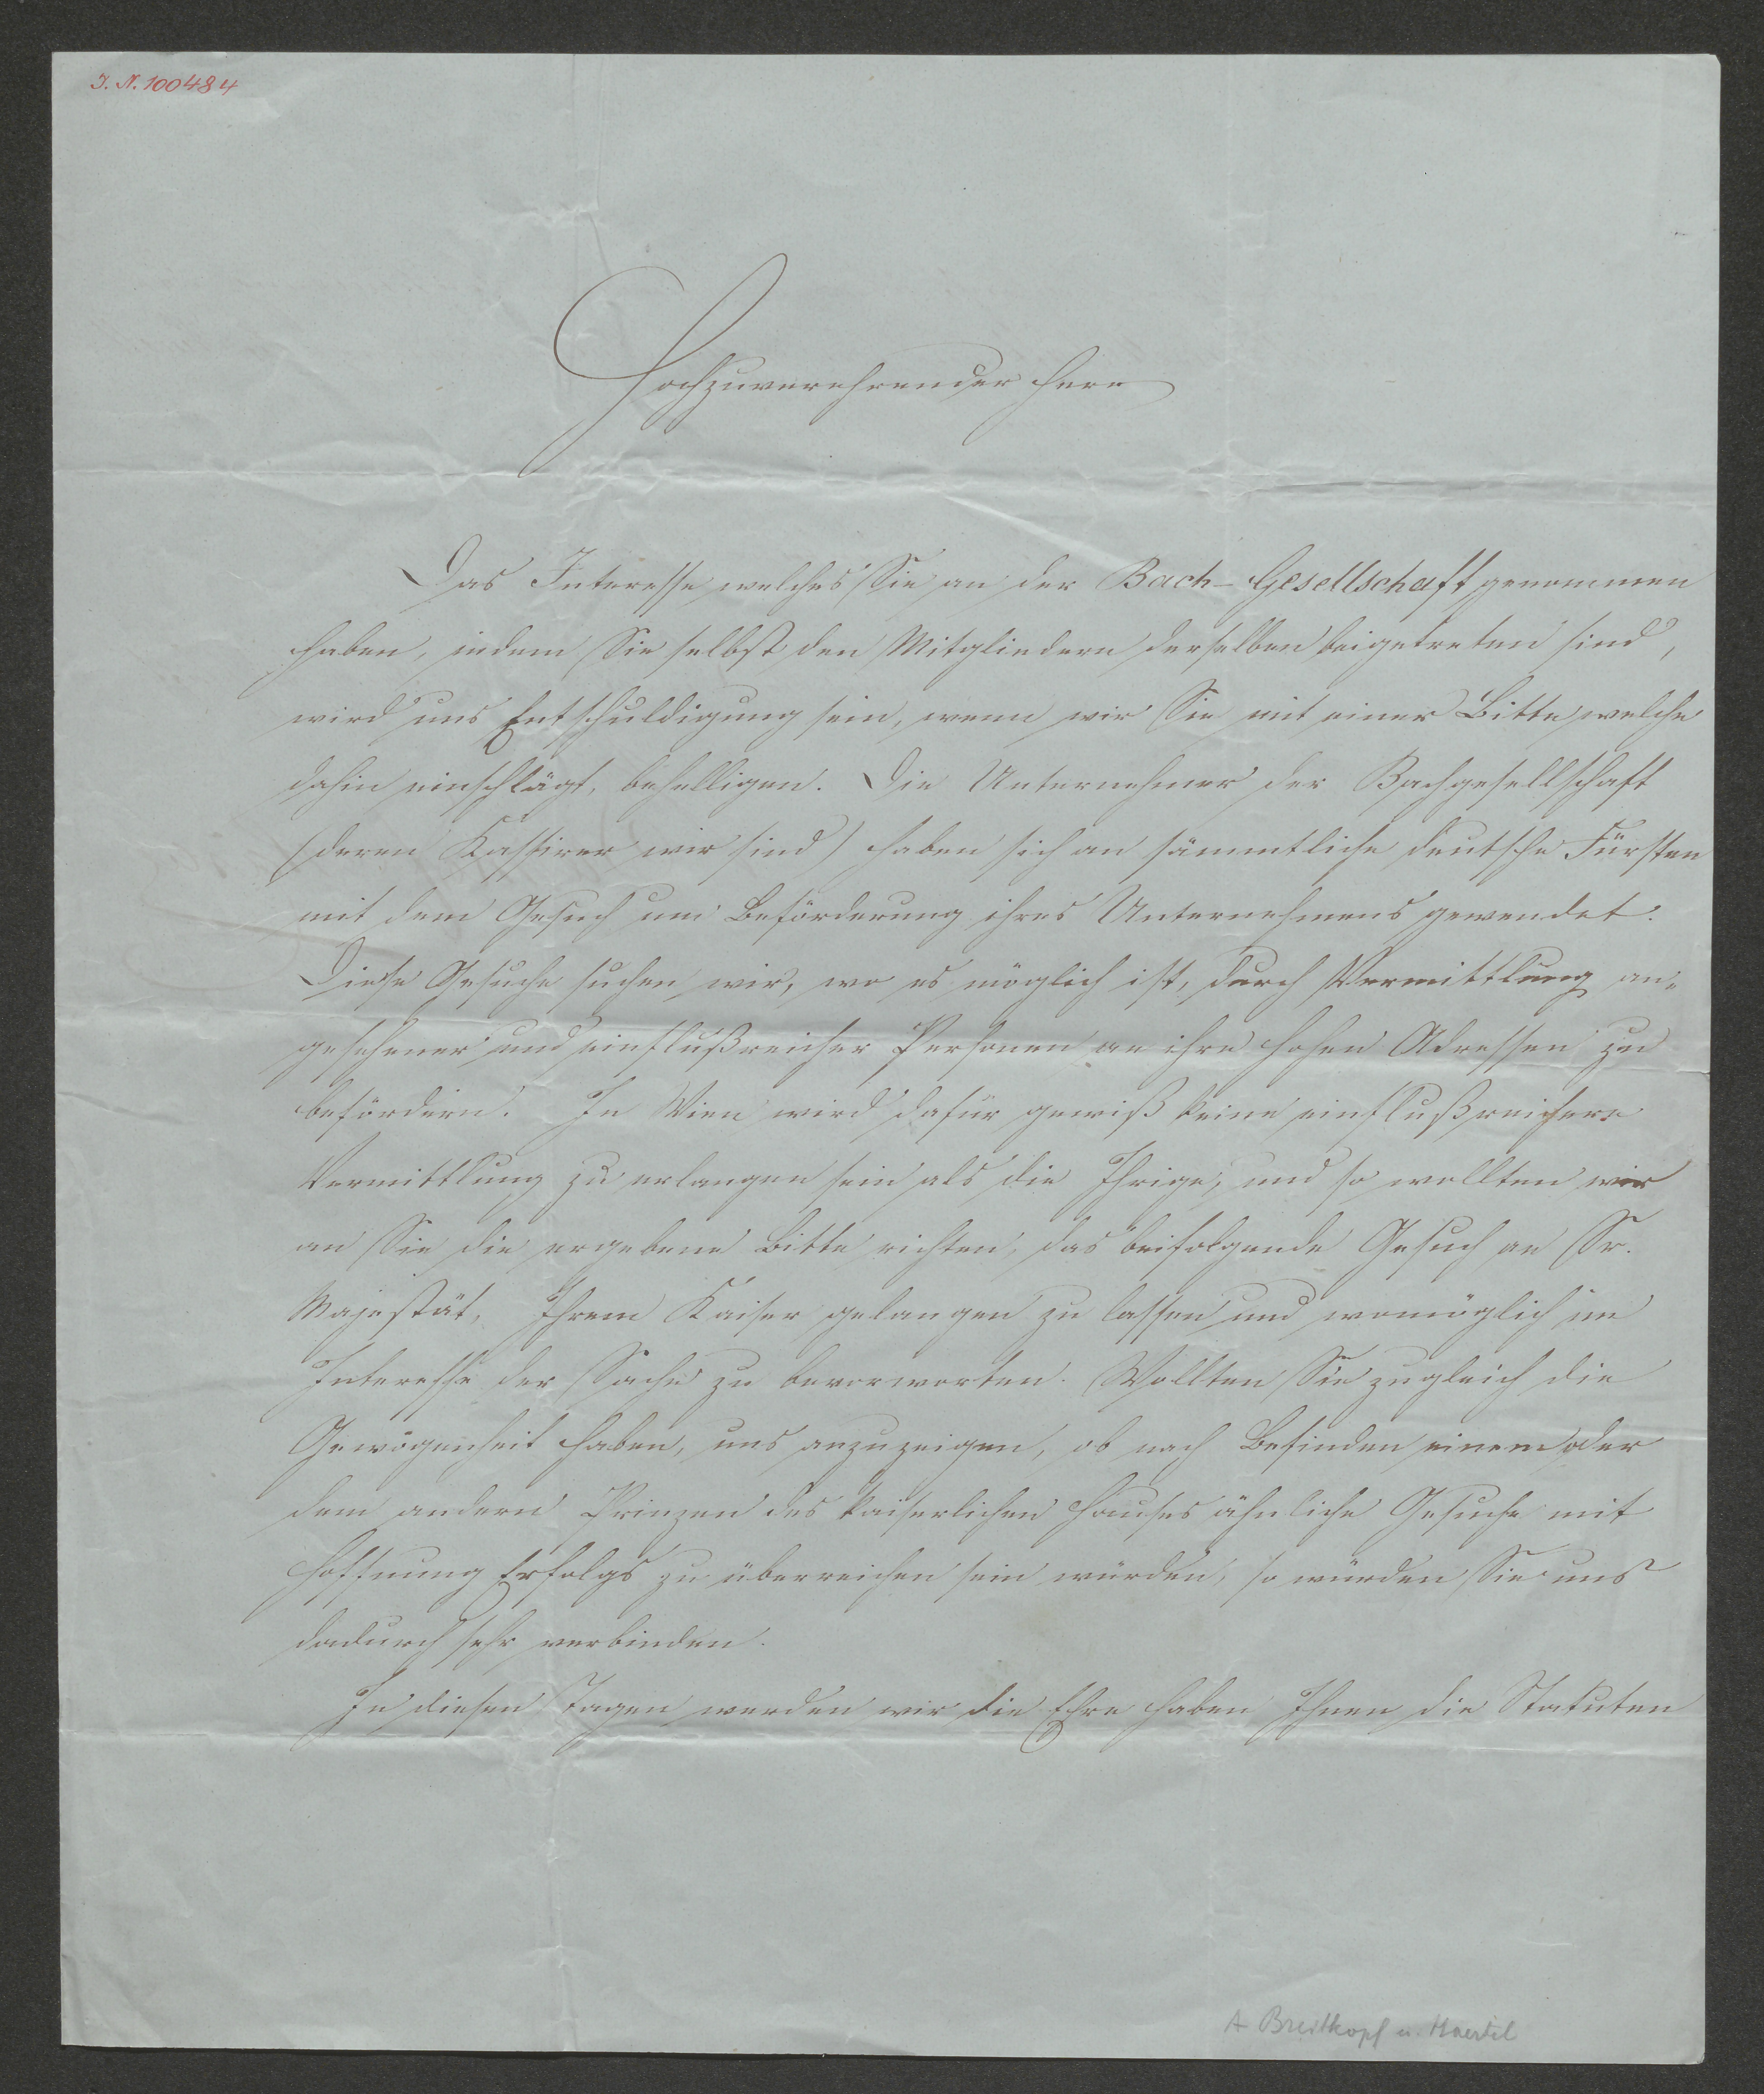 I. N. 100484
Hochzuverehrender Herr
Das Interesse welches Sie an der Bach-Gesellschaft genommen
haben, indem Sie selbst den Mitgliedern derselben beigetreten sind,
wird uns Entschuldigung sein, wenn wir Sie mit einer Bitte, welche
dahin einschlägt, behelligen. Die Unternehmer der Bachgesellschaft
(deren Kassirer wir sind) haben sich an sämmtliche deutsche Fürsten
mit dem Gesuch um Beförderung ihres Unternehmens gewendet.
Diese Gesuche suchen wir, wo es möglich ist, durch Vermittlung an-
gesehener und einflußreicher Personen an ihre hohen Adressen zu
befördern. In Wien wird dafür gewiß keine einflußreichere
Vermittlung zu erlangen sein als die Ihrige, und so wollten wir
an Sie die ergebene Bitte richten, das beifolgende Gesuch an Sr.
Majestät, Ihrem Kaiser gelangen zu lassen und womöglich im
Interesse der Sache zu bevorworten. Wollten Sie zugleich die
Gewogenheit haben, uns anzuzeigen, ob nach Befinden einem oder
dem andern Prinzen des kaiserlichen Hauses ähnliche Gesuche mit
Hoffnung Erfolgs zu überreichen sein würden, so würden Sie uns
dadurch sehr verbinden.
In diesen Tagen werden wir die Ehre haben Ihnen die Statuten
A Breitkopf u. Haertel